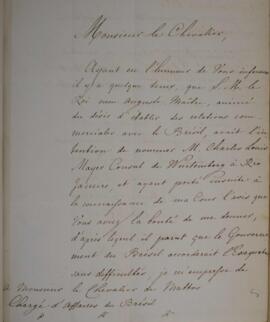 Monsieur le Chevalier,
Ayant eu l'honneur de Vous informer
il y a quelque tems, que S. M. le
Roi mon Auguste Maître, animé
du désir d'établir des relations com-
merciales avec le Brésil, avait l'in-
tention de nommer M. Charles Louis
Mayer Consul de Wurtemberg à Rio
Janeiro, et ayant porté ensuite à
la connaissance de ma Cour l'avis que
Vous avez eu la bonté de me donner,
d'après lequel il parait que le Gouverne-
ment du Brésil accorderait l'Exequatur
sans difficultés, je m'empresse de
à Monsieur le Chevalier de Mattos
Chargé d'Affaires du Brésil